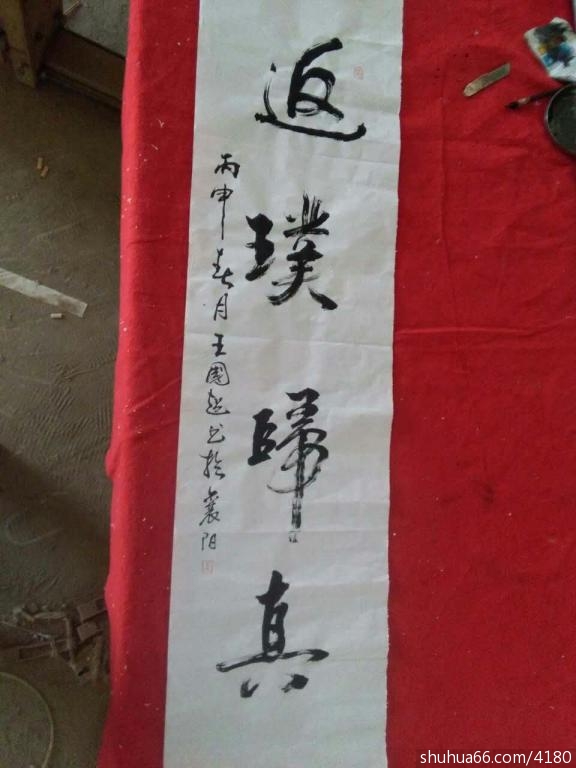 返璞歸真
丙申春月王國超书於襄阳
shuhua66.com/4180